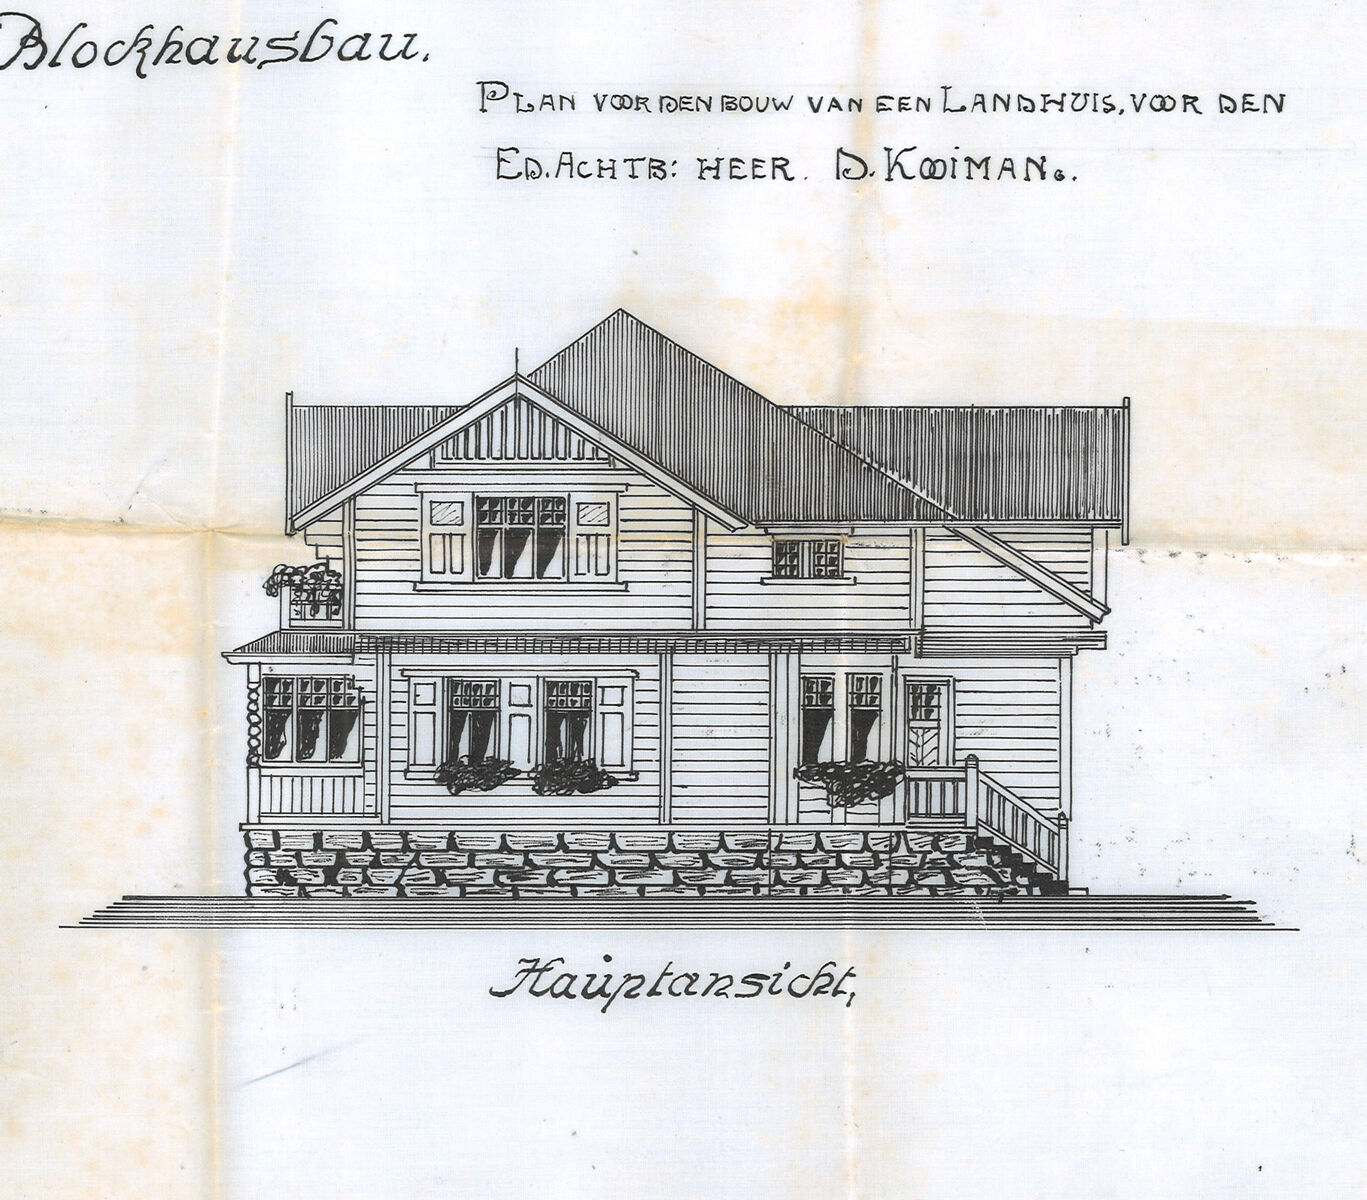 Blockhausbau.
PLAN VOOR DEN BOUW VAN EEN LANDHUIS, VOOR DEN
ED. ACHTB: HEER. D. KOOIMAN.
Hauptansicht,